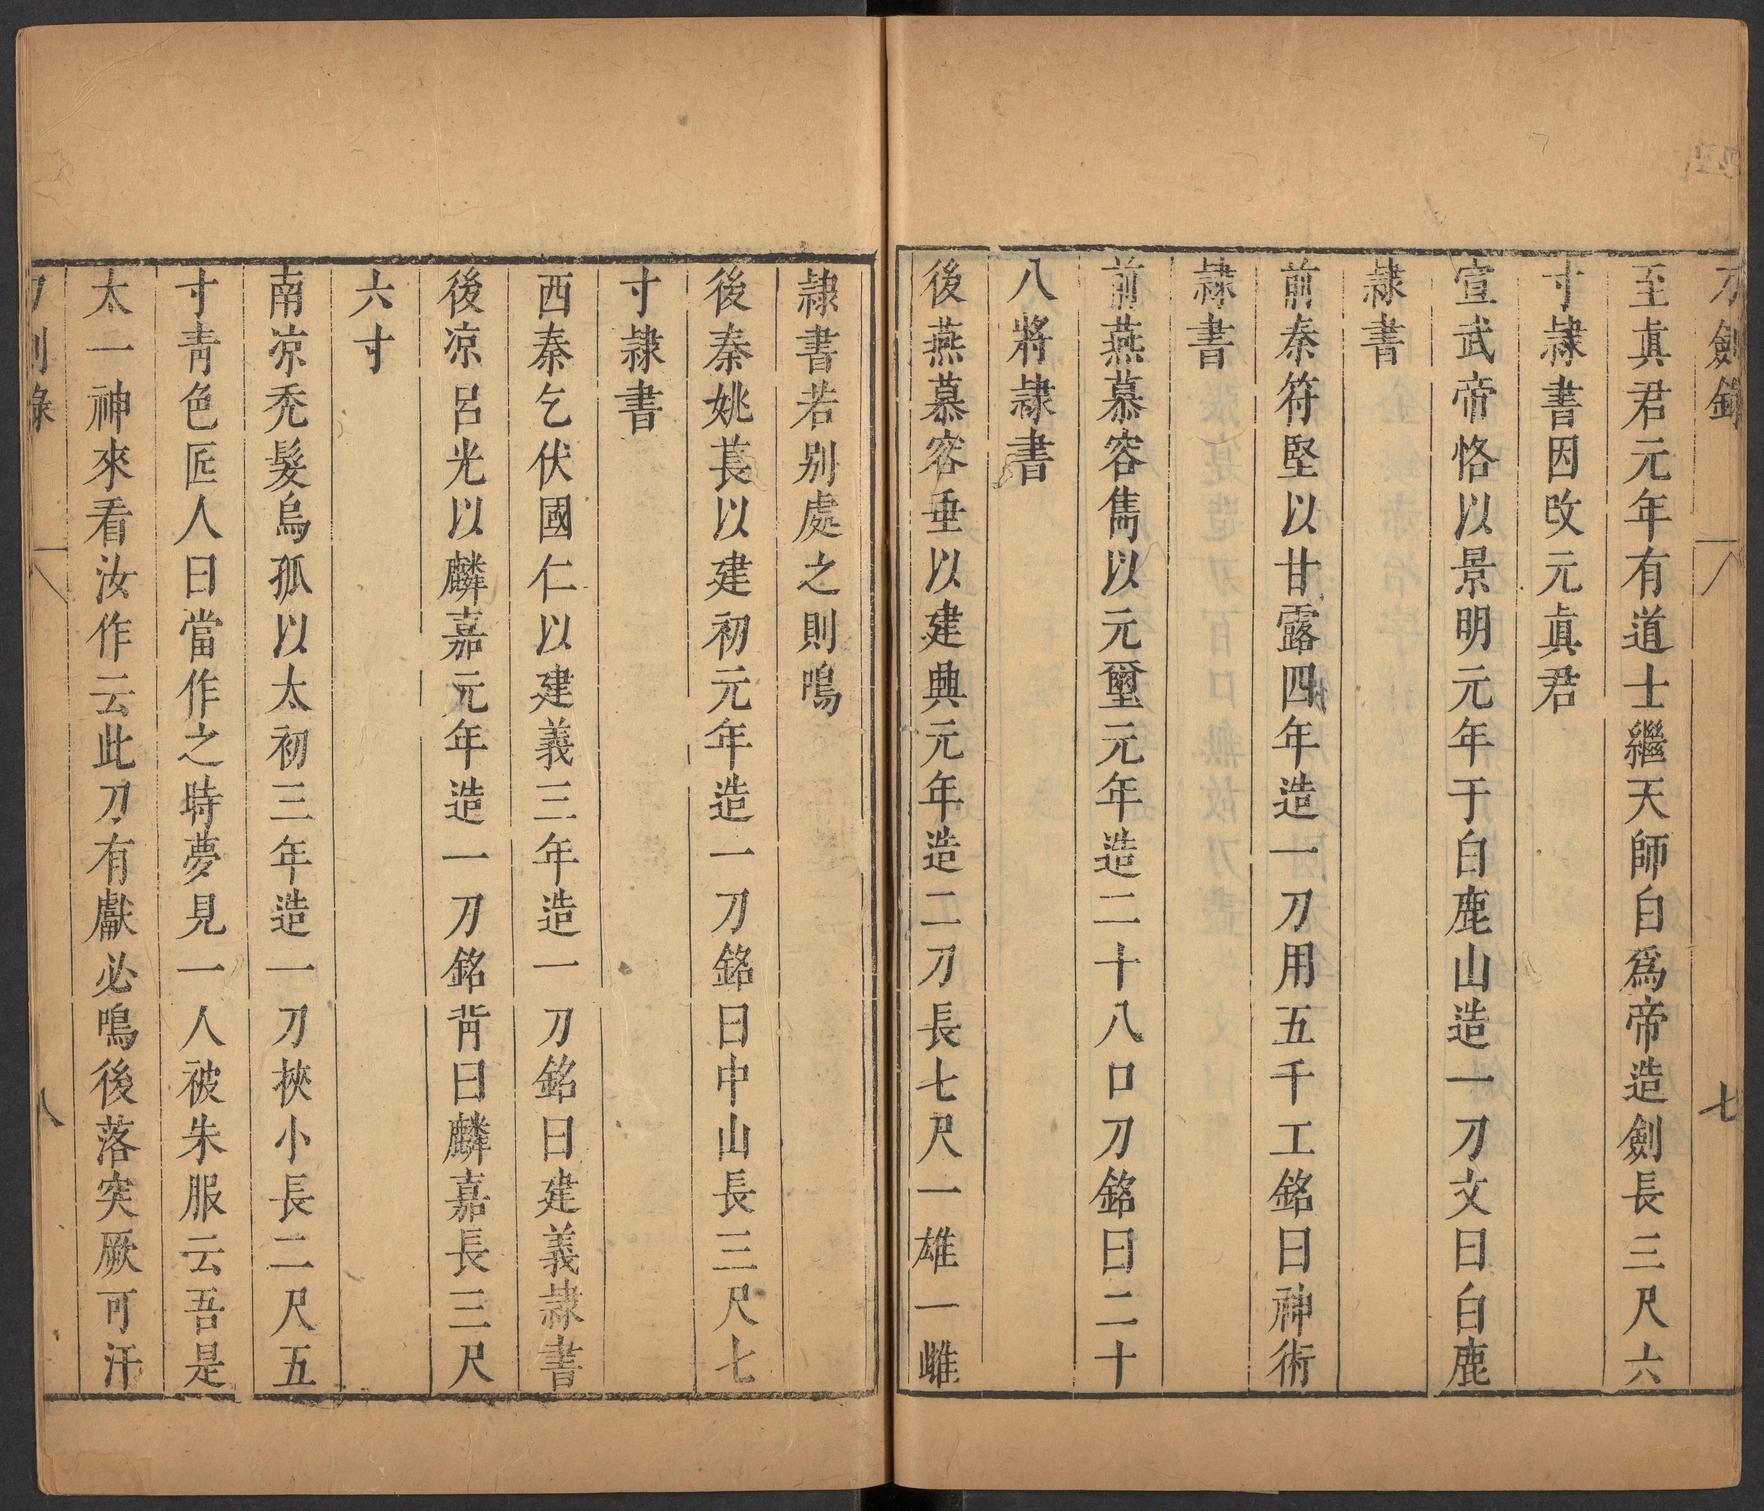 刀劍錄
七
至眞君元年有道士繼天師白爲帝造劍長三尺六
寸隷書因改元眞君
宣武帝恪以景明元年于白鹿山造一刀文曰白鹿
隷書
前秦符堅以甘露四年造一刀用五千工銘曰神術
隷書
前燕慕容雋以元璽元年造二十八口刀銘曰二十
八將隷書
後燕慕容垂以建興元年造二刀長七尺一雄一雌
隷書若别處之則鳴
後秦姚萇以建初元年造一刀銘曰中山長三尺七
寸隷書
西秦乞伏國仁以建義三年造一刀銘曰建義隷書
後凉呂光以麟嘉元年造一刀銘背曰麟嘉長三尺
六寸
南凉禿髮烏孤以太初三年造一刀挾小長二尺五
寸靑色匠人曰當作之時夢見一人被朱服云吾是
太一神來看汝作云此刀有獻必鳴後落突厥可汗
刀劍錄
八